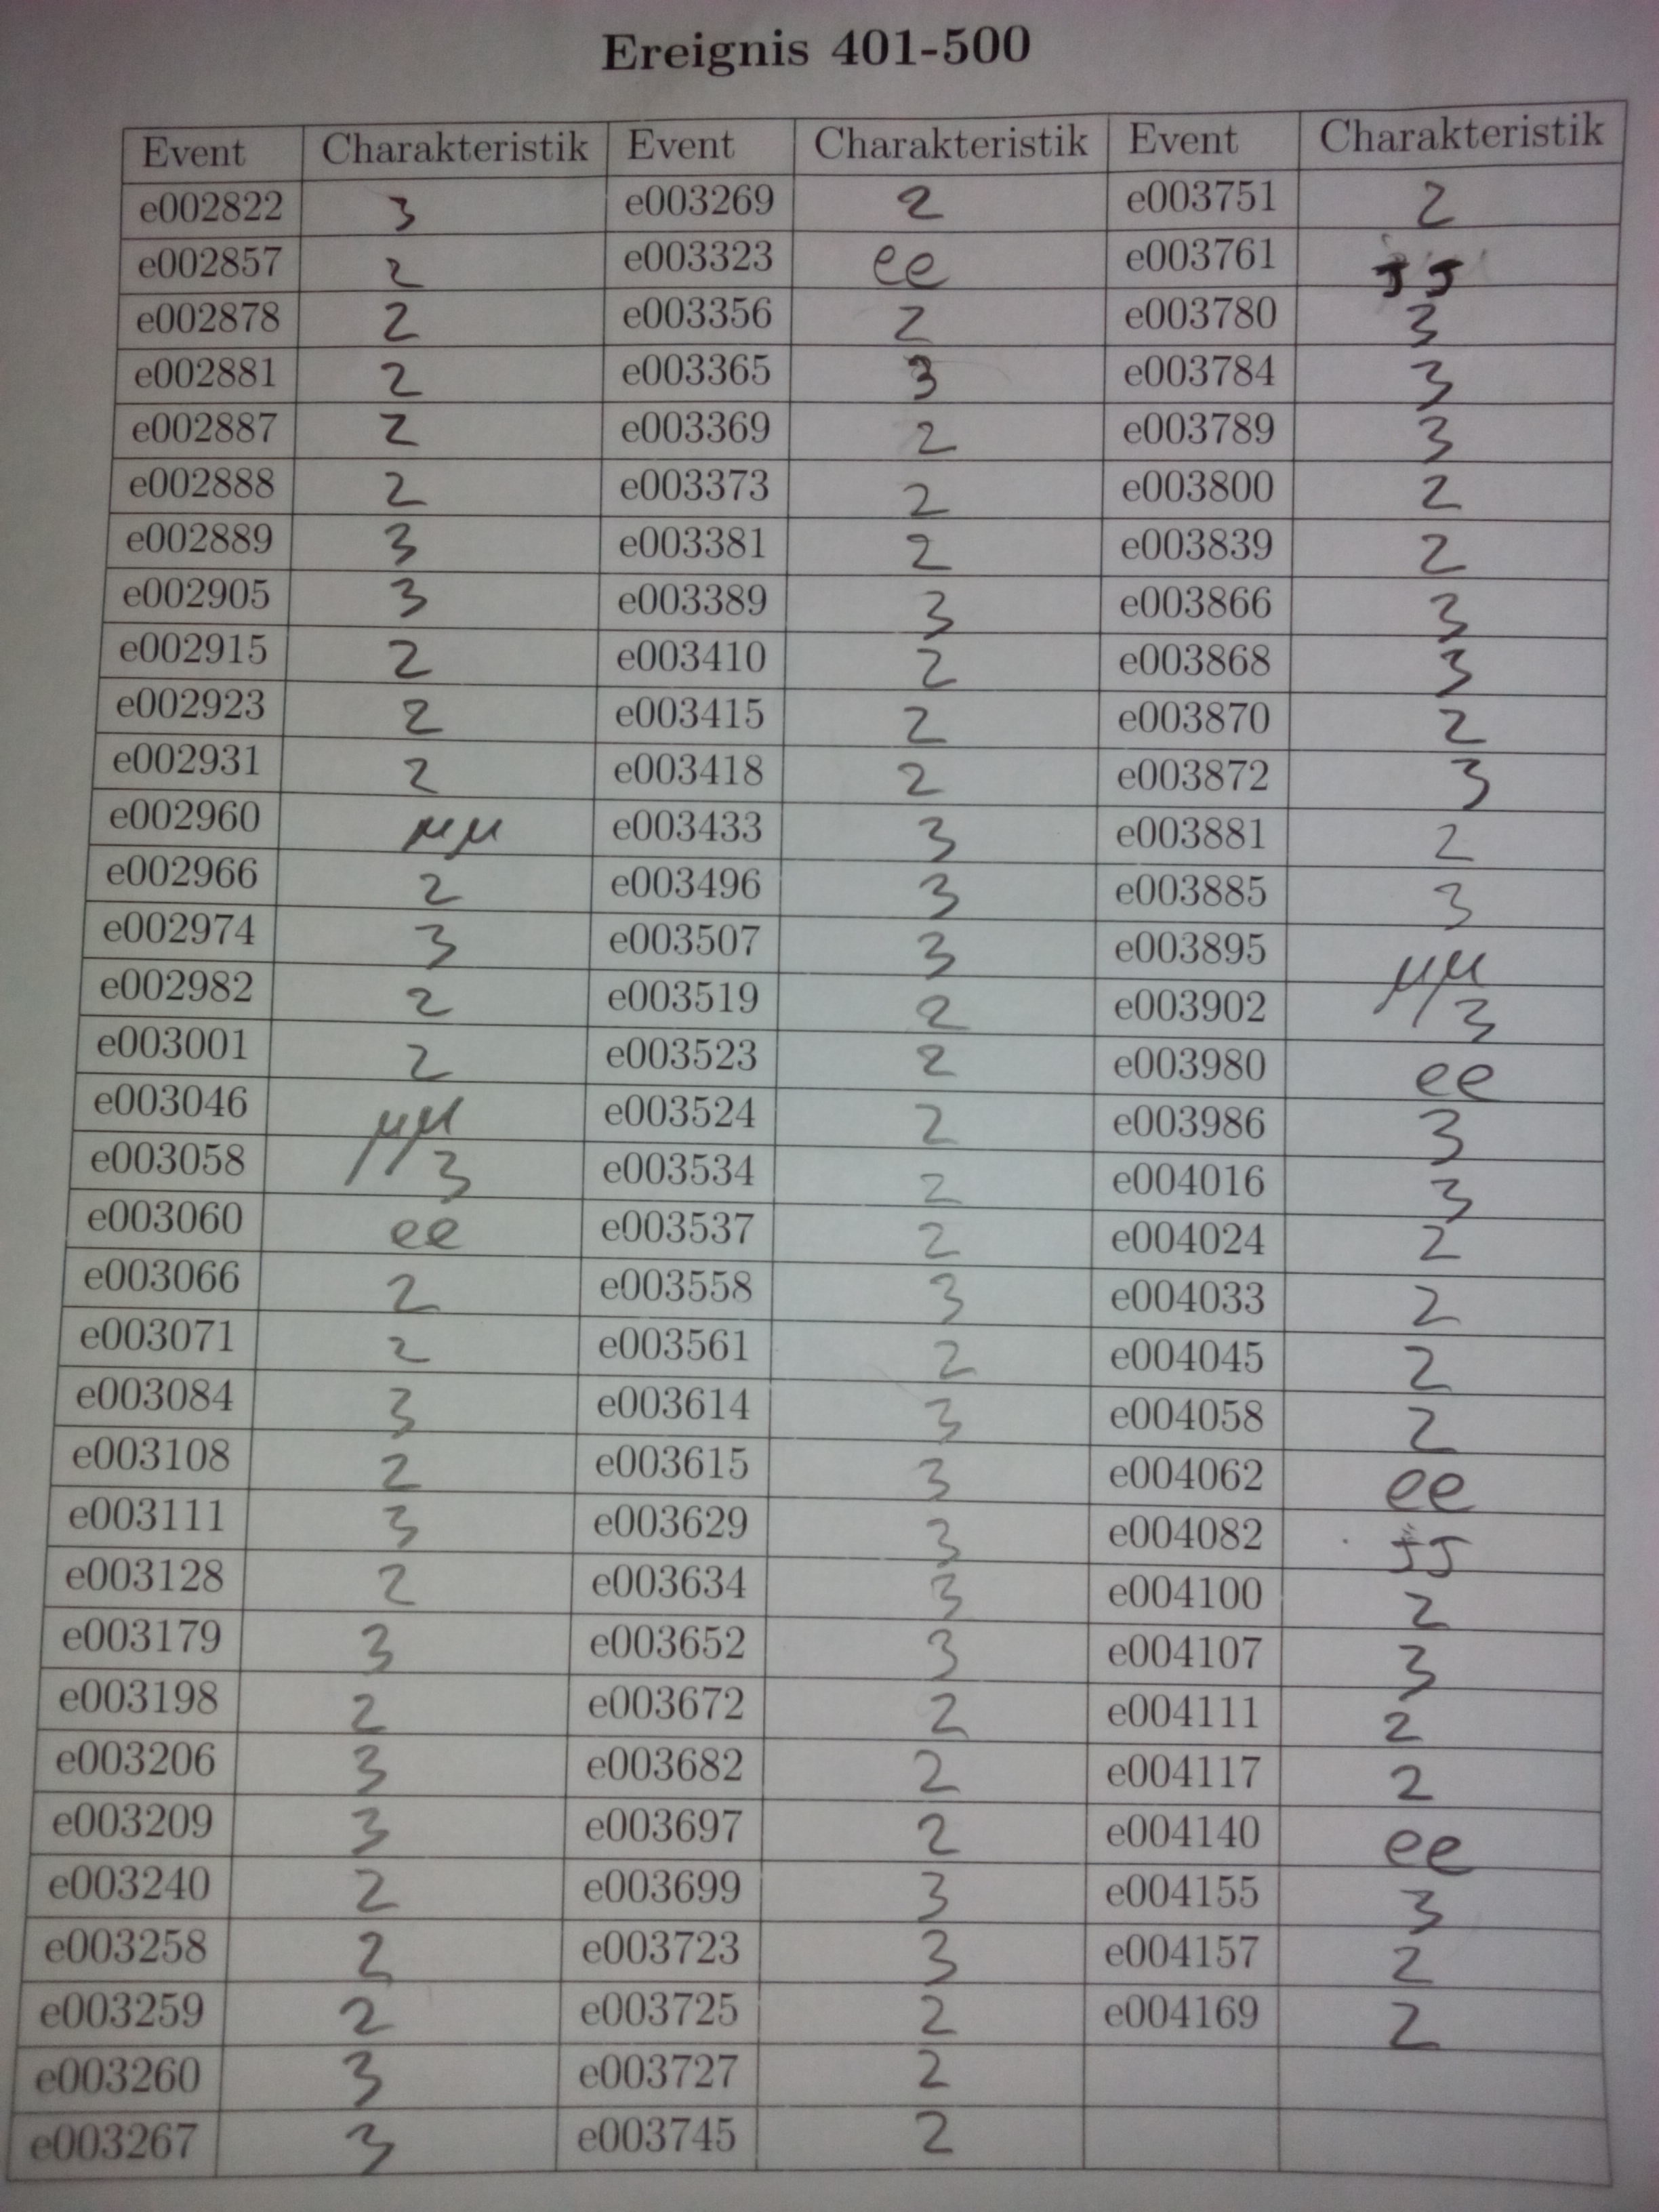 Ereignis 401-500
Event Charakteristik Event Charakteristik Event Charakteristik
e002822 3 e003269 2 e003751 2
e002857 2 e003323 ee e003761 JJ
e002878 2 e003356 2 e003780 3
e002881 2 e003365 3 e003784 3
e002887 2 e003369 2 e003789 3
e002888 2 e003373 2 e003800 2
e002889 3 e003381 2 e003839 2
e002905 3 e003389 3 e003866 3
e002915 2 e003410 2 e003868 3
e002923 2 e003415 2 e003870 2
e002931 2 e003418 2 e003872 3
e002960 μμ e003433 3 e003881 2
e002966 2 e003496 3 e003885 3
e002974 3 e003507 3 e003895 μμ
e002982 2 e003519 2 e003902 3
e003001 2 e003523 2 e003980 ee
e003046 μμ e003524 2 e003986 3
e003058 3 e003534 2 e004016 3
e003060 ee e003537 2 e004024 2
e003066 2 e003558 3 e004033 2
e003071 2 e003561 2 e004045 2
e003084 3 e003614 3 e004058 2
e003108 2 e003615 3 e004062 ee
e003111 3 e003629 3 e004082 JJ
e003128 2 e003634 3 e004100 2
e003179 3 e003652 3 e004107 3
e003198 2 e003672 2 e004111 2
e003206 3 e003682 2 e004117 2
e003209 3 e003697 2 e004140 ee
e003240 2 e003699 3 e004155 3
e003258 2 e003723 3 e004157 2
e003259 2 e003725 2 e004169 2
e003260 3 e003727 2
e003267 3 e003745 2